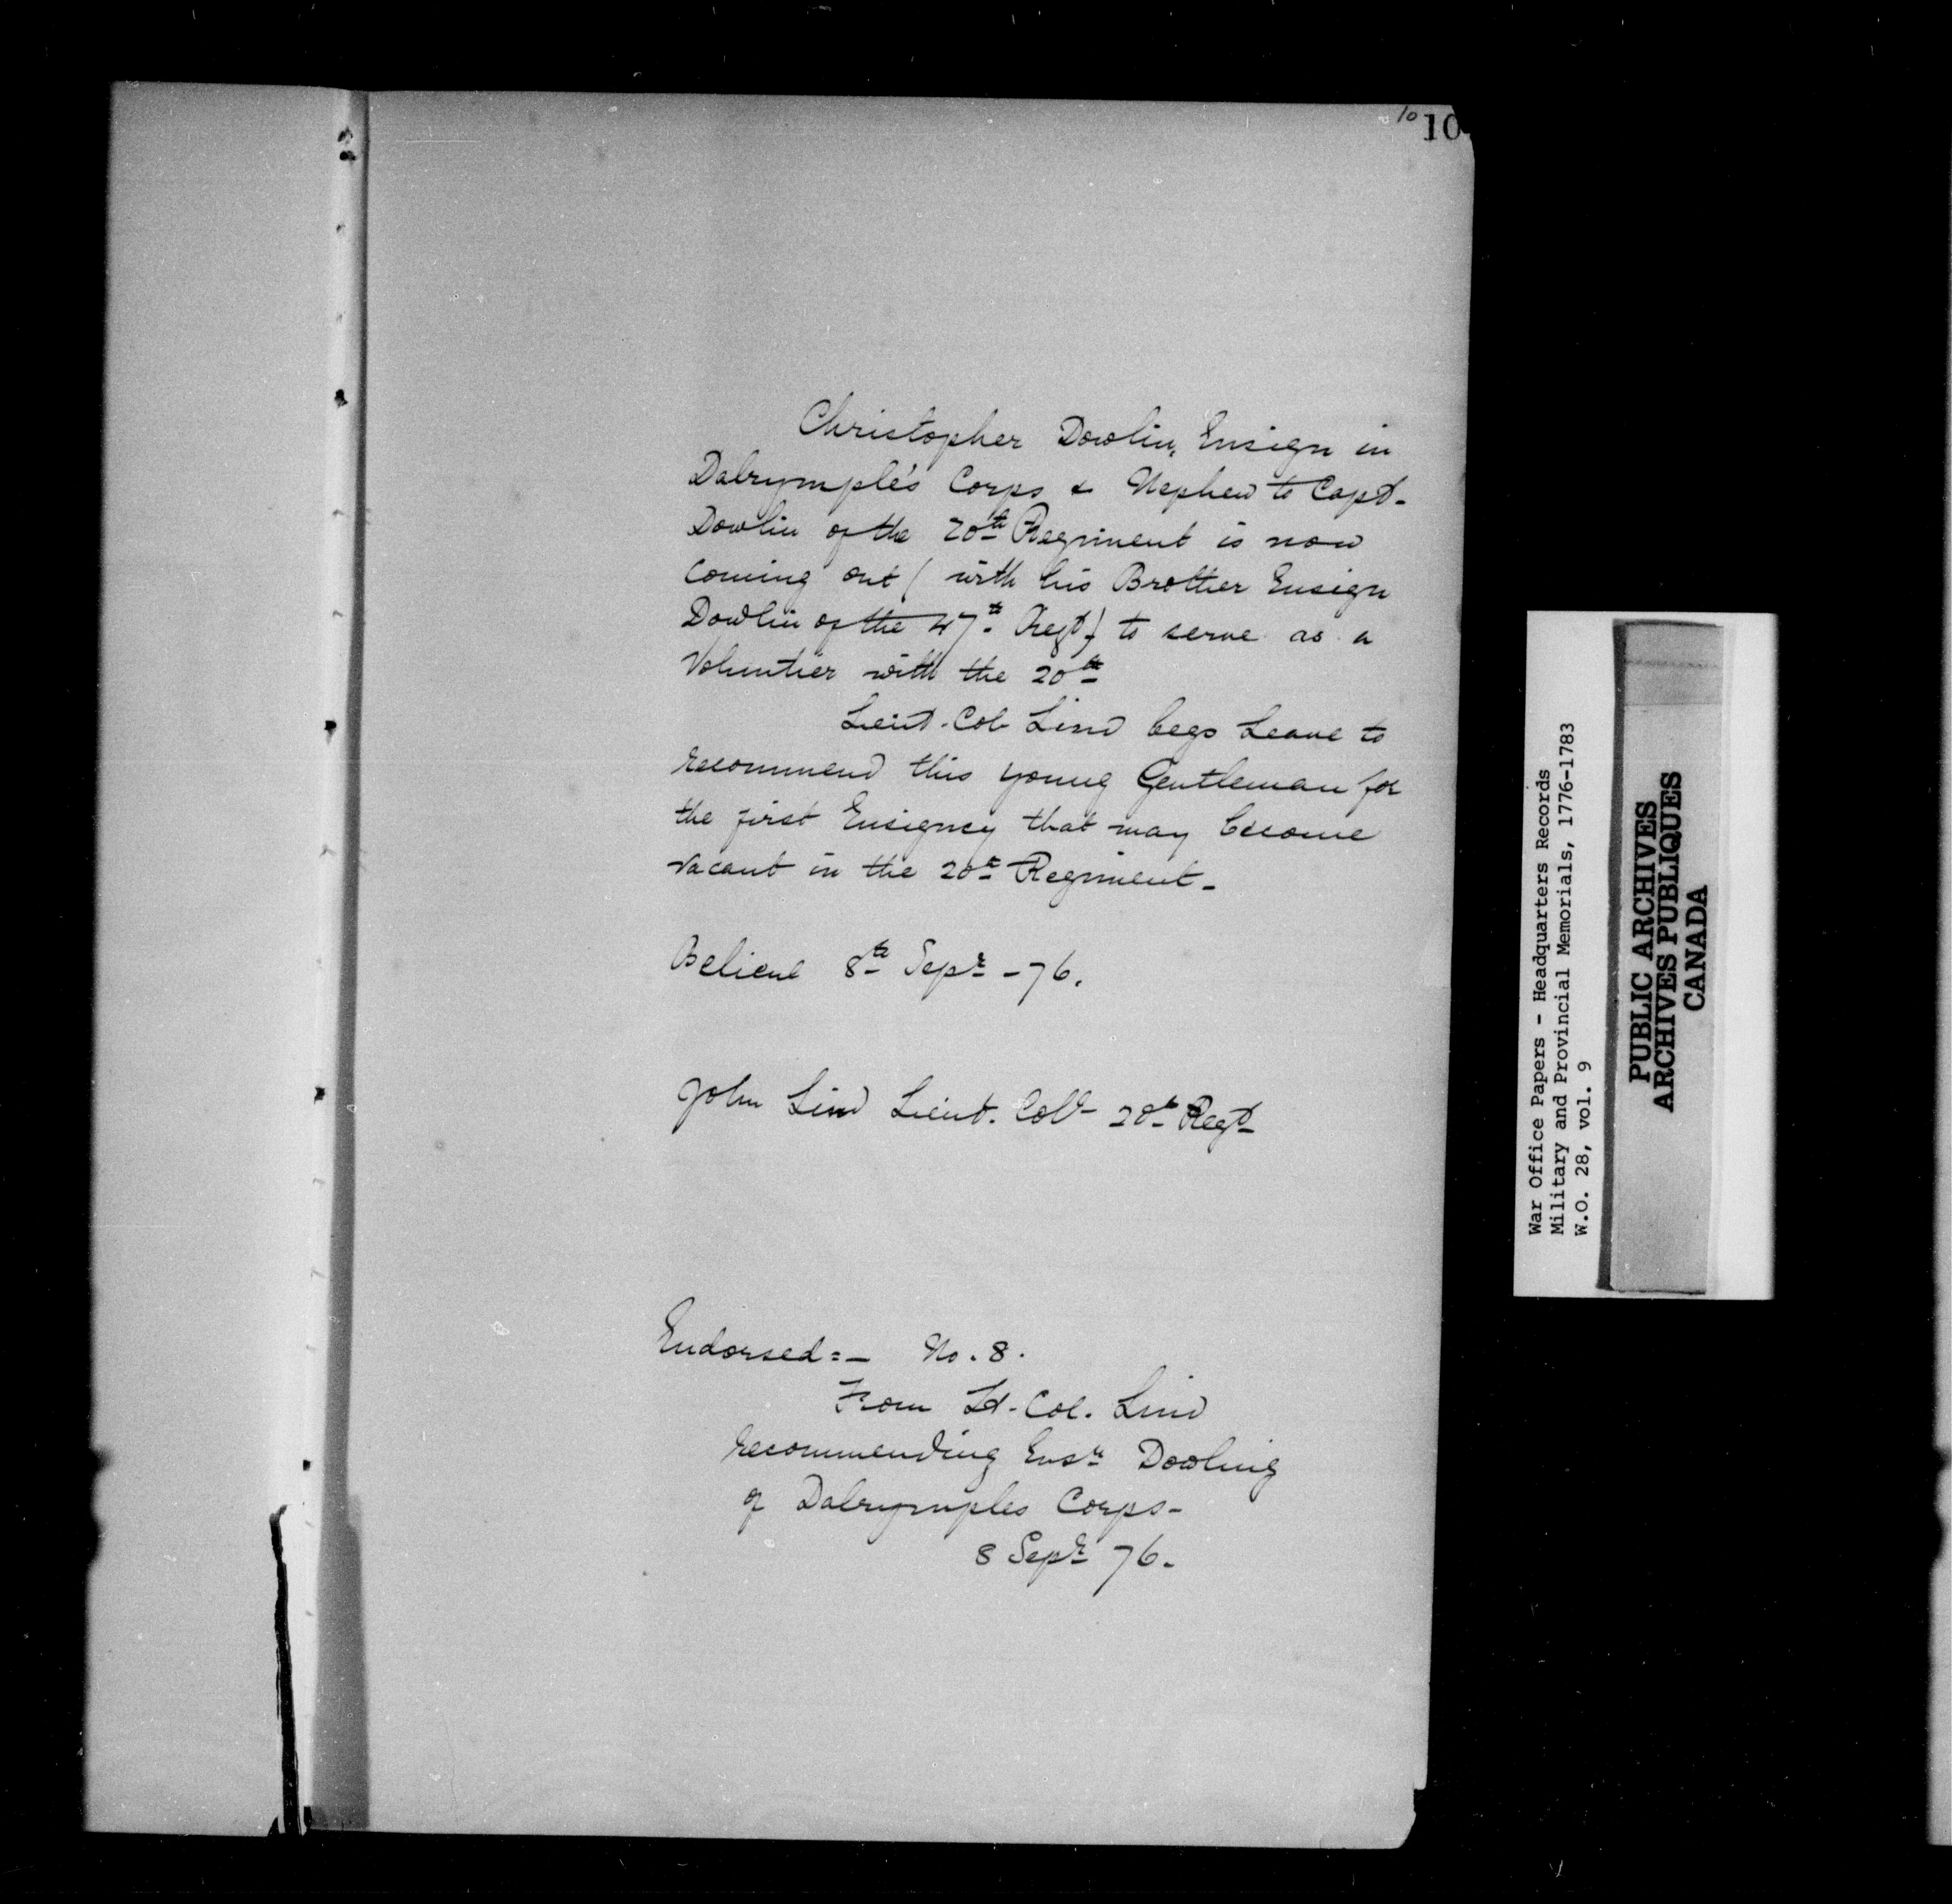 10 10
Christopher Dowlin, Ensign in
Dalrymple's Corps & Nephew to Capt.
Dowlin of the 20th Regiment is now
Coming out ( with his Brother Ensign
Dowlin of the 47th Regt) to serve as a
Voluntier with the 20th
Lieut. Col. Lind begs Leave to
recommend this young Gentleman for
the first Ensigncy that may become
vacant in the 20th Regiment -
Belieul 8th Sepr - 76.
John Lind Lieut. Coll 20th Regt
Endorsed = - No. 8.
From Lt. Col. Lind
recommending Ensn Dowling
of Dalrymples Corps -
8 Sepr 76.
War Office Papers - Headquarters Records
Military and Provincial Memorials, 1776-1783
W.O. 28, vol. 9
PUBLIC ARCHIVES
ARCHIVES PUBLIQUES
CANADA